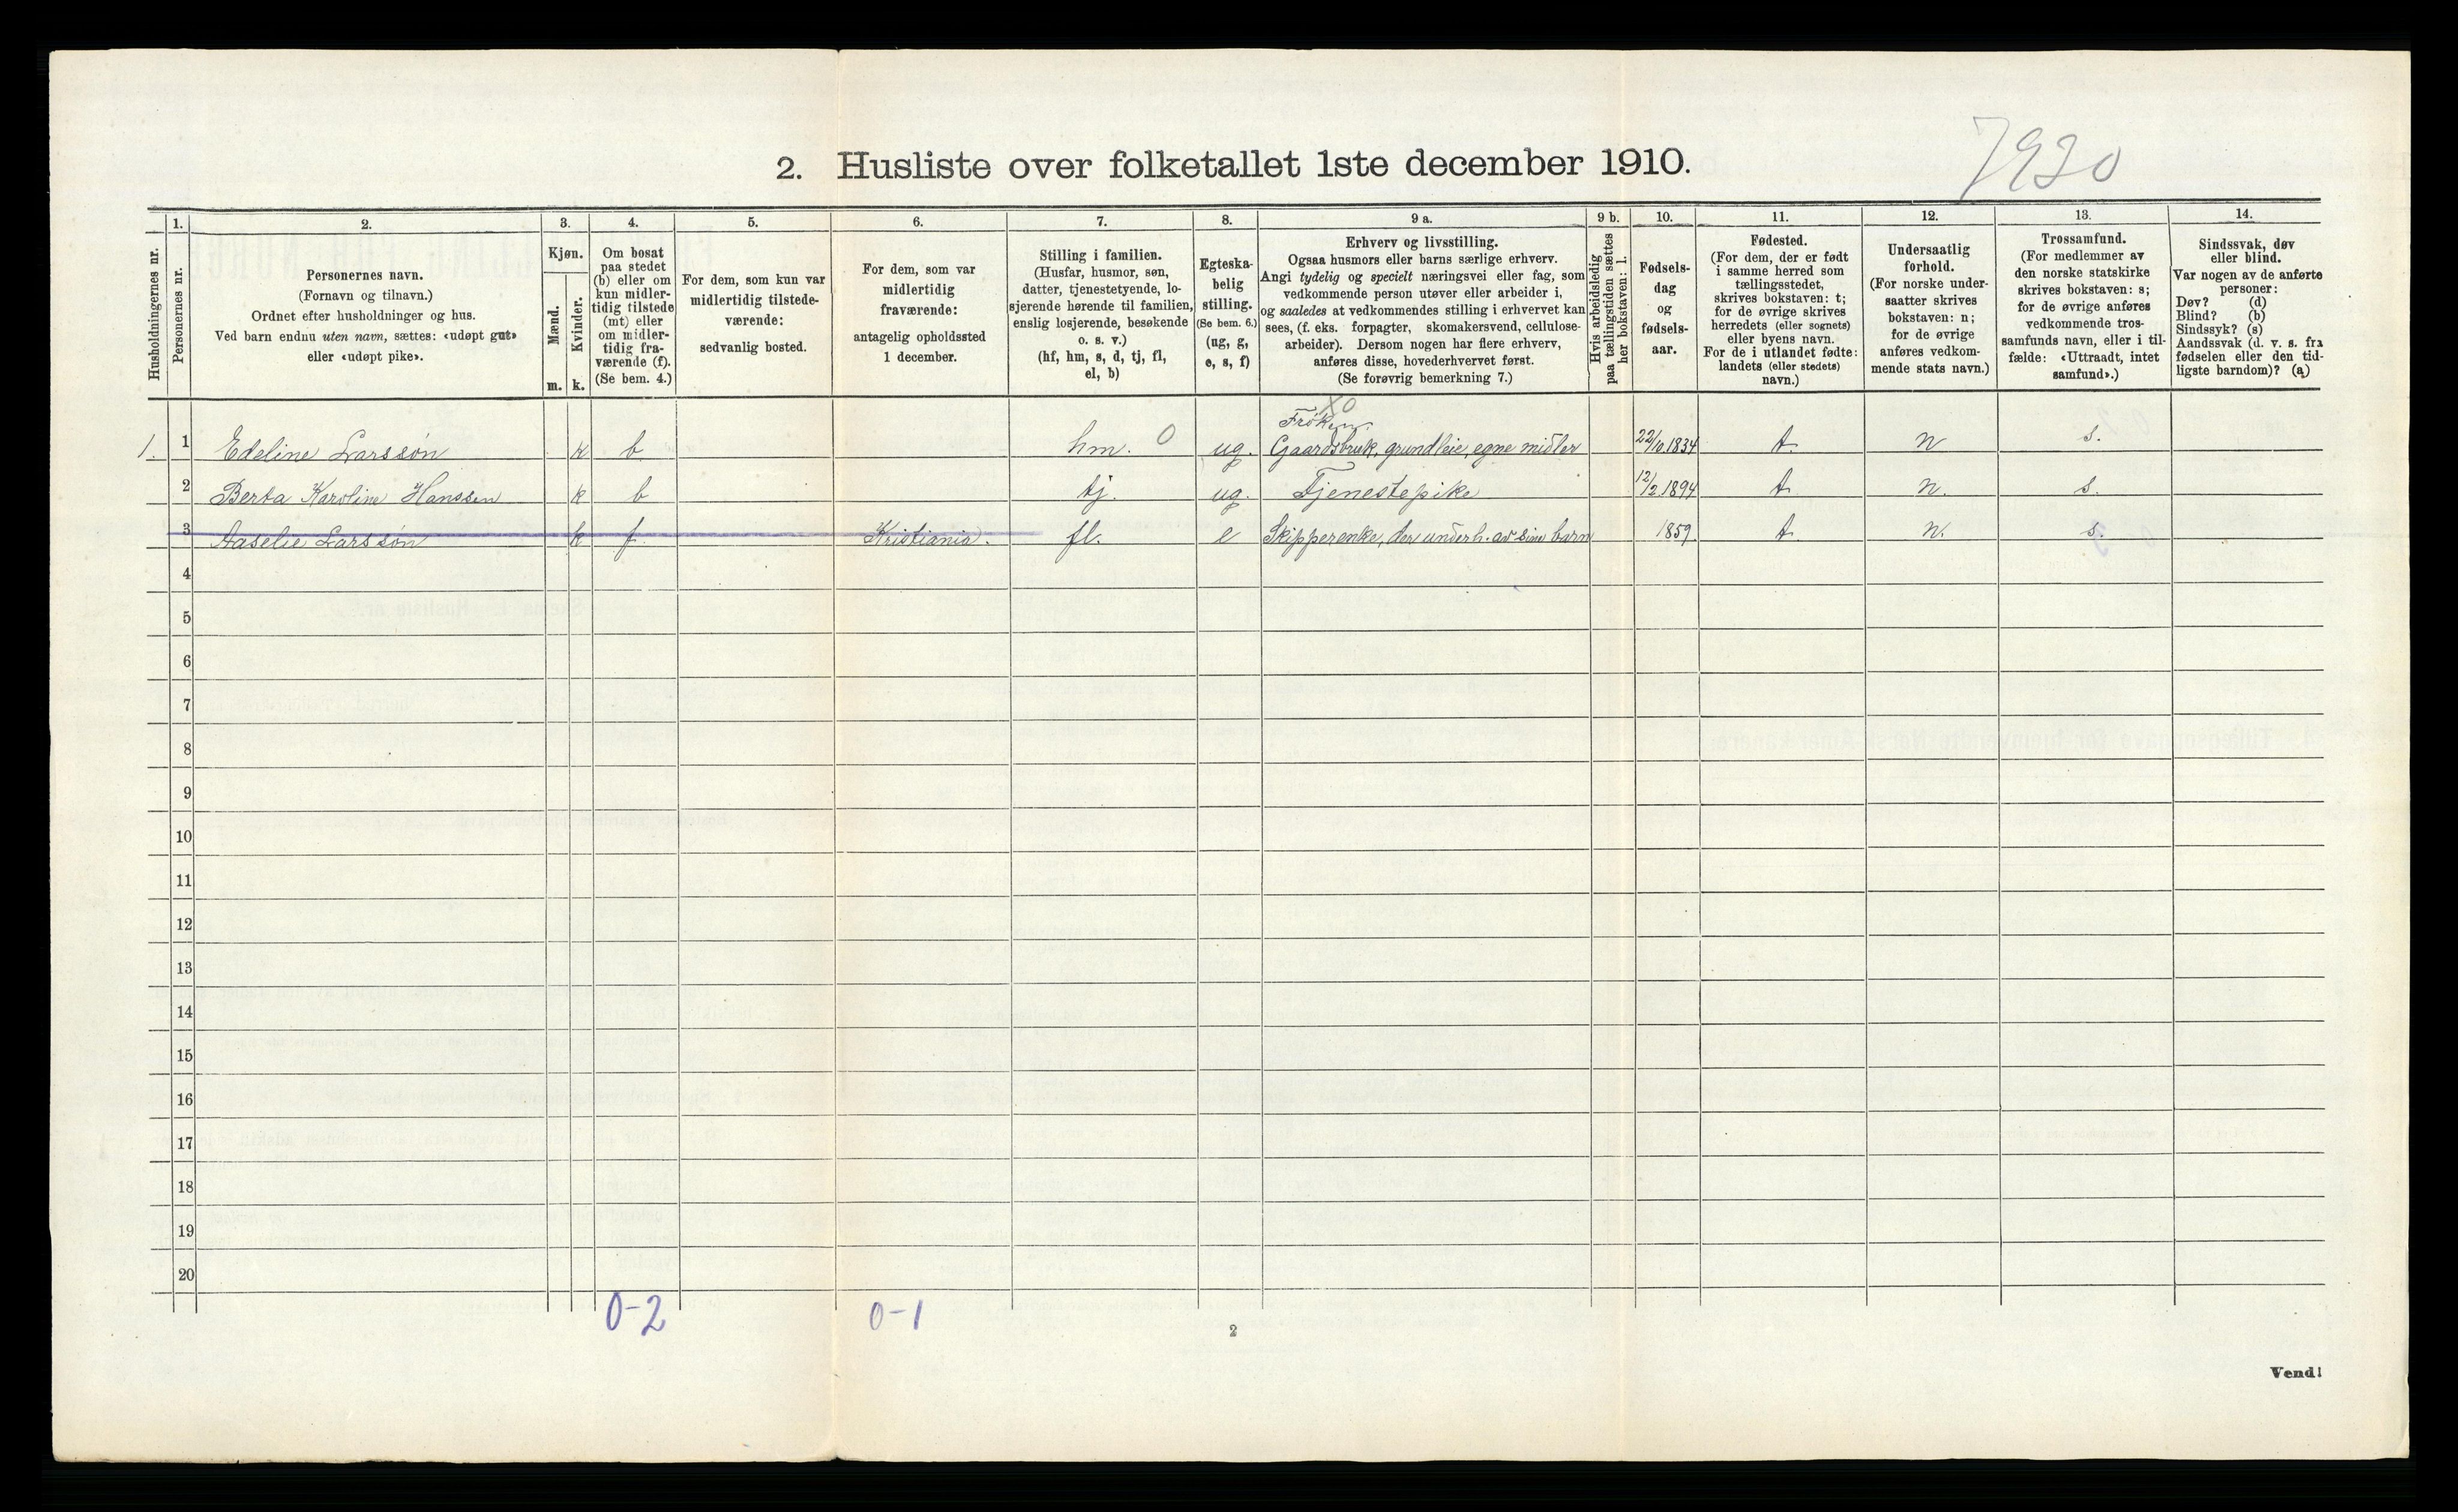 7930
2. Husliste over folketallet 1ste december 1910.
Husholdningernes nr.
1.
Personernes nr.
2.
Personernes navn.
(Fornavn og tilnavn.)
Ordnet efter husholdninger og hus.
Ved barn endnu uten navn, sættes: «udøpt gut»
eller «udøpt pike».
3.
Kjøn.
Mænd.
Kvinder.
m. k.
4.
Om bosat
paa stedet
(b) eller om
kun midler-
tidig tilstede
(mt) eller
om midler-
tidig fra-
værende (f).
(Se bem. 4.)
5.
For dem, som kun var
midlertidig tilstede-
værende:
sedvanlig bosted.
6.
For dem, som var
midlertidig
fraværende:
antagelig opholdssted
1 december.
7.
Stilling i familien.
(Husfar, husmor, søn,
datter, tjenestetyende, lo-
sjerende hørende til familien,
enslig losjerende, besøkende
o. s. v.)
(hf, hm, s, d, tj, fl,
el, b)
8.
Egteska-
belig
stilling.
(Se bem. 6.)
(ug, g,
e, s, f)
9 a.
Erhverv og livsstilling.
Ogsaa husmors eller barns særlige erhverv.
Angi tydelig og specielt næringsvei eller fag, som
vedkommende person utøver eller arbeider i,
og saaledes at vedkommendes stilling i erhvervet kan
sees, (f. eks. forpagter, skomakersvend, cellulose-
arbeider). Dersom nogen har flere erhverv,
anføres disse, hovederhvervet først.
(Se forøvrig bemerkning 7.)
9 b.
Hvis arbeidsledig
paa tællingstiden sættes
her bokstaven: l.
10.
Fødsels-
dag
og
fødsels-
aar.
11.
Fødested.
(For dem, der er født
i samme herred som
tællingsstedet,
skrives bokstaven: t;
for de øvrige skrives
herredets (eller sognets)
eller byens navn.
For de i utlandet fødte:
landets (eller stedets)
navn.)
12.
Undersaatlig
forhold.
(For norske under-
saatter skrives
bokstaven: n;
for de øvrige
anføres vedkom-
mende stats navn.)
13.
Trossamfund.
(For medlemmer av
den norske statskirke
skrives bokstaven: s;
for de øvrige anføres
vedkommende tros-
samfunds navn, eller i til-
fælde: «Uttraadt, intet
samfund».)
14.
Sindssvak, døv
eller blind.
Var nogen av de anførte
personer:
Døv? (d)
Blind? (b)
Sindssyk? (s)
Aandssvak (d. v. s. fra
fødselen eller den tid-
ligste barndom)? (a)
X0
Frøken
1. 1 Edeline Larssøn k b hm. 0 ug. Gaardsbruk, grundleie, egne midler 22/10.1834 t. n s.
2 Berta Karoline Hanssen k b tj. ug. Tjenestepike 12/2.1894 t. n. s.
3 Aaselie Larssøn k f. Kristiania. fl. e Skipperenke, der underh. av sine barn 1859 t. n. s.
4
5
6
7
8
9
10
11
12
13
14
15
16
17
18
19
20
0-2 0-1
2
Vend!